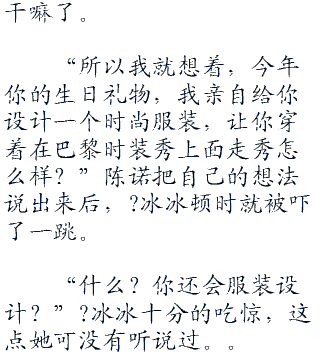 干嘛了。
“所以我就想着，今年
你的生日礼物，我亲自给你
设计一个时尚服装，让你穿
着在巴黎时装秀上面走秀怎
么样？”陈诺把自己的想法
说出来后，?冰冰顿时就被吓
了一跳。
“什么？你还会服装设
计？”?冰冰十分的吃惊，这
点她可没有听说过。。